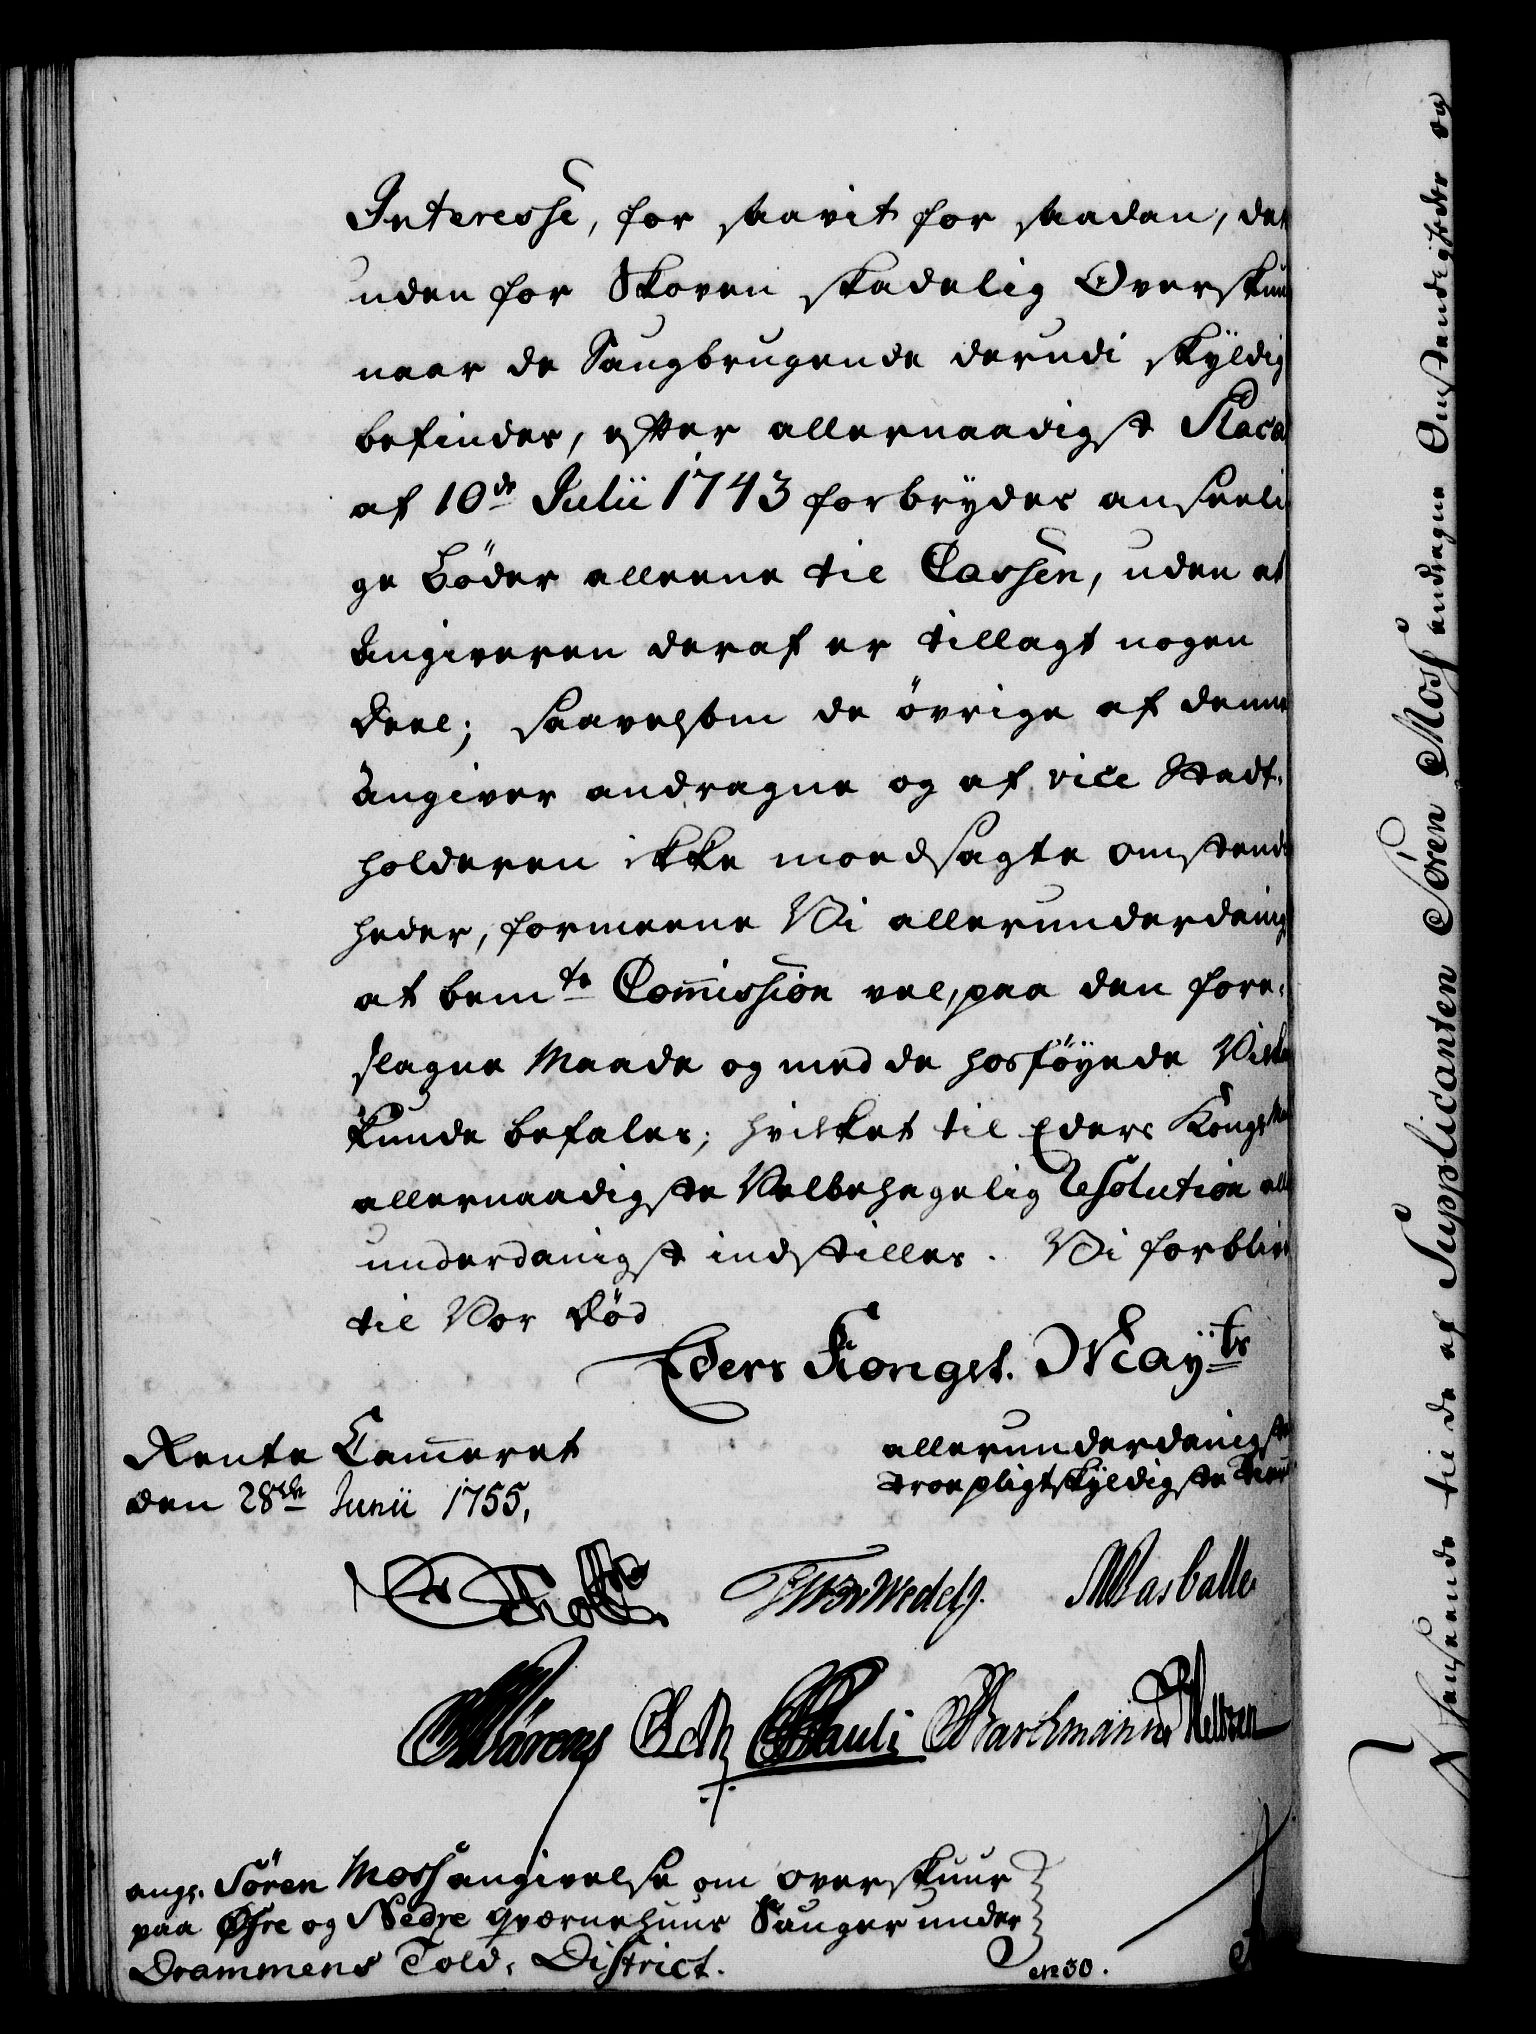 Interesse, for saavit for saadan, det
uden for Skoven skadelig Overskuu
naar de Saugbrugende derudi skÿldig
befindes, efter allernaadigst Placa
af 10de Julii 1743 forbrydes anseeli
ge Böder alleene til Cassen, uden at
Angiveren deraf er tillagt nogen
Deel; saavelsom de övrige af denne
Angiver andragne og af vice Stadt-
holderen ikke moedsagte omstænd
heder, formeene Vi allerunderdanig
at bemte Commission vel, paa den fore-
slagne Maade og med de hosföyede Vilka
kunde befales; hvilket til Eders Kongs Ma
allernaadigste Velbehagelig Resolution all
underdanigst indstilles. Vi forbliv
til Vor Död
Eders Kongel. Mayts
Rente Cammeret
den 28de Junii 1755.
allerunderdanigste
troepligtskÿldigste Tien
Wedelsj.
Pauli
angs. Sören Moss angivelse om overskuur
paa Øfre og Nedre Qværnehuus Sauger under
Drammens Told-District.
No 30.
Ansende til de af Supplicanten Sören Moss andragne Omstændigheder og